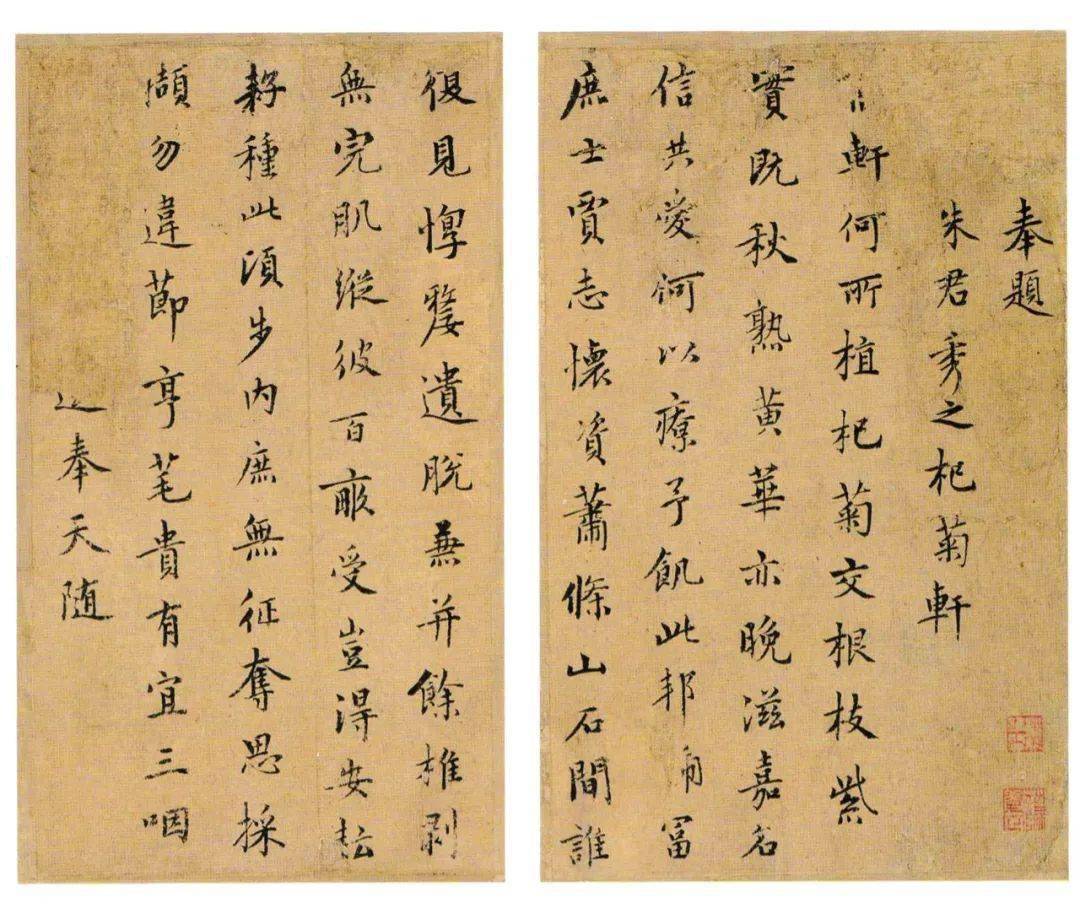 奉題
朱君秀之杞菊軒
軒何所植杞菊交根枝紫
實既秋熟黄華亦晚滋嘉名
信共愛何以療予飢此邦角富
庶士賈志懷資蕭條山石間誰
復見惸嫠遺脫兼并餘椎剥
無完肌縱彼百畞受豈得安耘
耔種此湏步内庶無征奪思採
擷勿違莭亨芼貴有宜三咽
奉天随